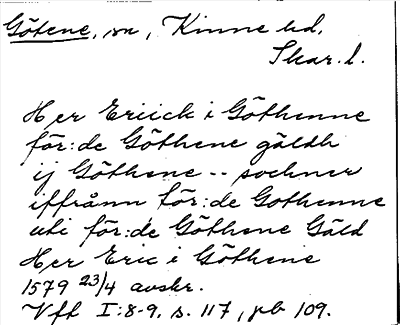 Götene, sn, Kinne hd,
Skar. l.
Her Eriick i Göthenne
för:de Göthene gäldh
ij Göthene -- sochner
iffrånn för:de Gothenne
uti för:de Göthene Gäld
Her Eric i Göthene
1579 23/4 avskr.
Vfft I:8-9, s. 117, pb 109.